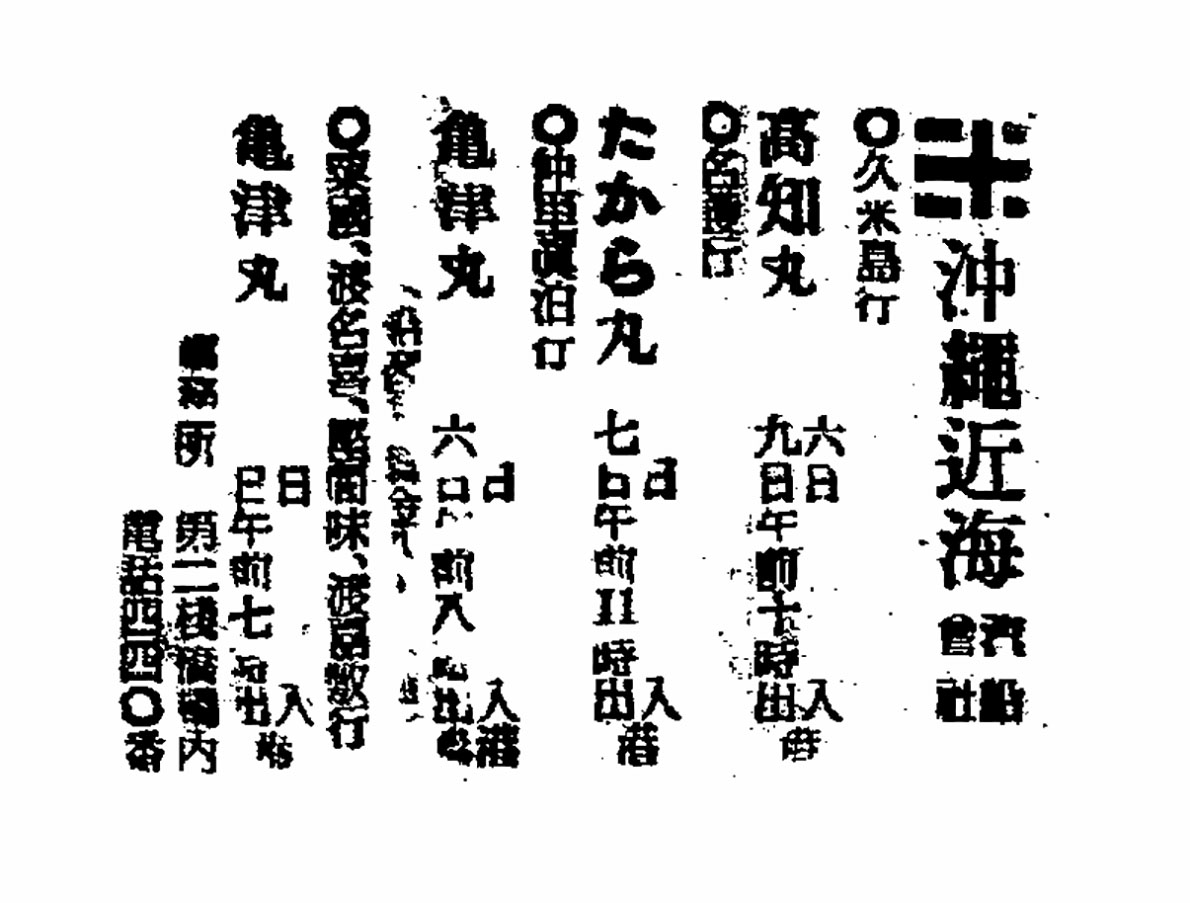 沖縄近海汽船會社
○久米島行
高知丸 六日入港 九日午前十時出港
○名護行
たから丸 七日入港 日午前11時出港
○仲里真泊行
亀津丸 六日入港 日午前八時出港
○粟國、渡名喜、座間味、渡嘉敷行
亀津丸 日入港 日午前七時出港
事務所 第二棧橋構内
電話四四〇番